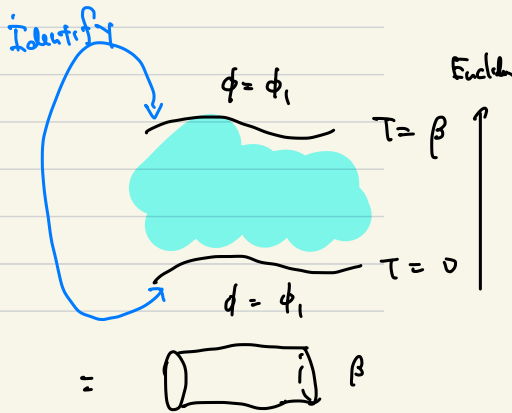 Identify
ϕ = ϕ₁
Euclidea
τ = β
τ = 0
ϕ = ϕ₁
=
β